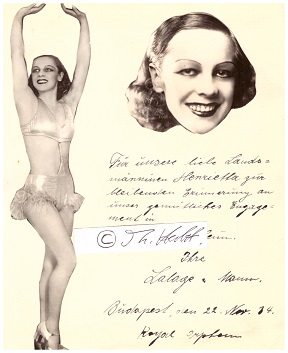 Für unsere liebe Lands-
männinen Henrietta zur
bleibenden Erinnerung an
unser gemütliches Engage-
ment in
© Th. Hebbt
Ihre
Lalage u.
Budapest, den 22. Nov. 34.
Royal Orpheum